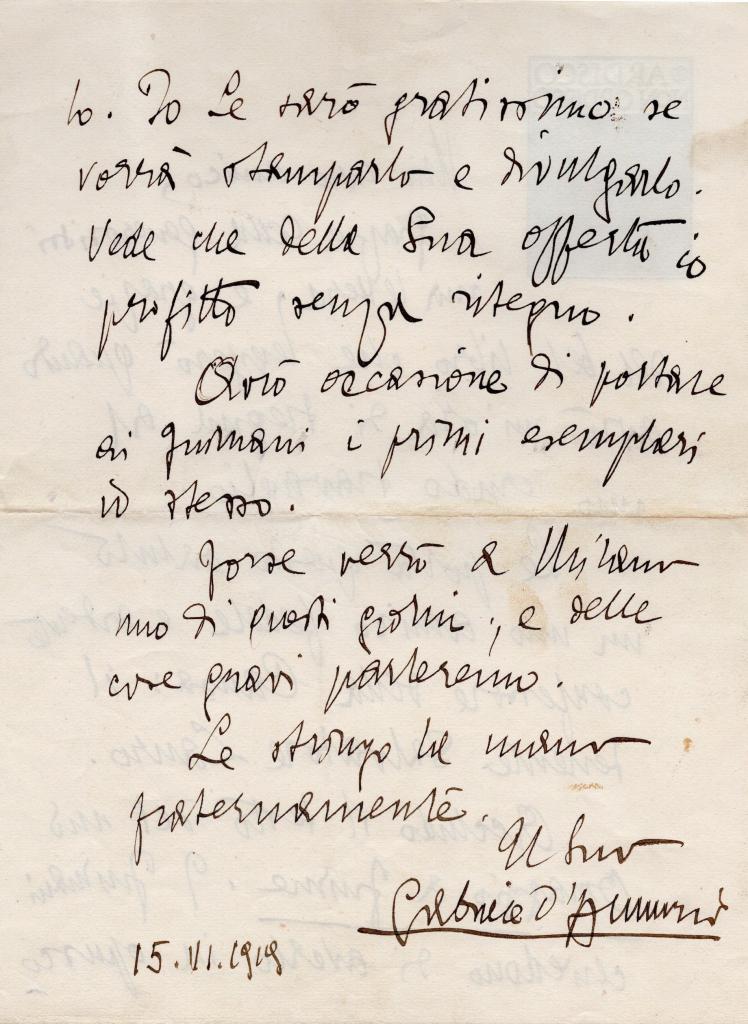 lo. Io Le sarò gratissimo se
vorrà stamparlo e divulgarlo.
Vede che della Sua offerta io
profitto senza ritegno.
Avrò occasione di portare
ai fiumani i primi esemplari
io stesso.
Forse verrò a Milano
uno di questi giorni; e delle
cose gravi parleremo.
Le stringo la mano
fraternamente.
Il Suo
Gabriele D'Annunzio
15.VI.1919